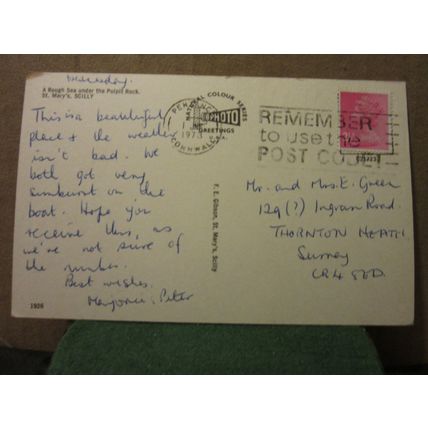 Wednesday.
A Rough Sea under the Pulpit Rock,
St. Mary's, SCILLY
This is a beautiful
place & the weather
isn't bad. We
both got very
sunburnt on the
boat. Hope you
receive this, as
we're not sure of
the number.
Best wishes.
Marjorie, Peter
1926
NATURAL COLOUR SERIES
PHOTO
GREETINGS
F. E. Gibson, St. Mary's, Scilly
PENZANCE
1973
CORNWALL
REMEMBER
to use the
POST CODE
Mr. and Mrs. E. Green
129(?) Ingram Road.
THORNTON HEATH
Surrey
CR4 8ED.